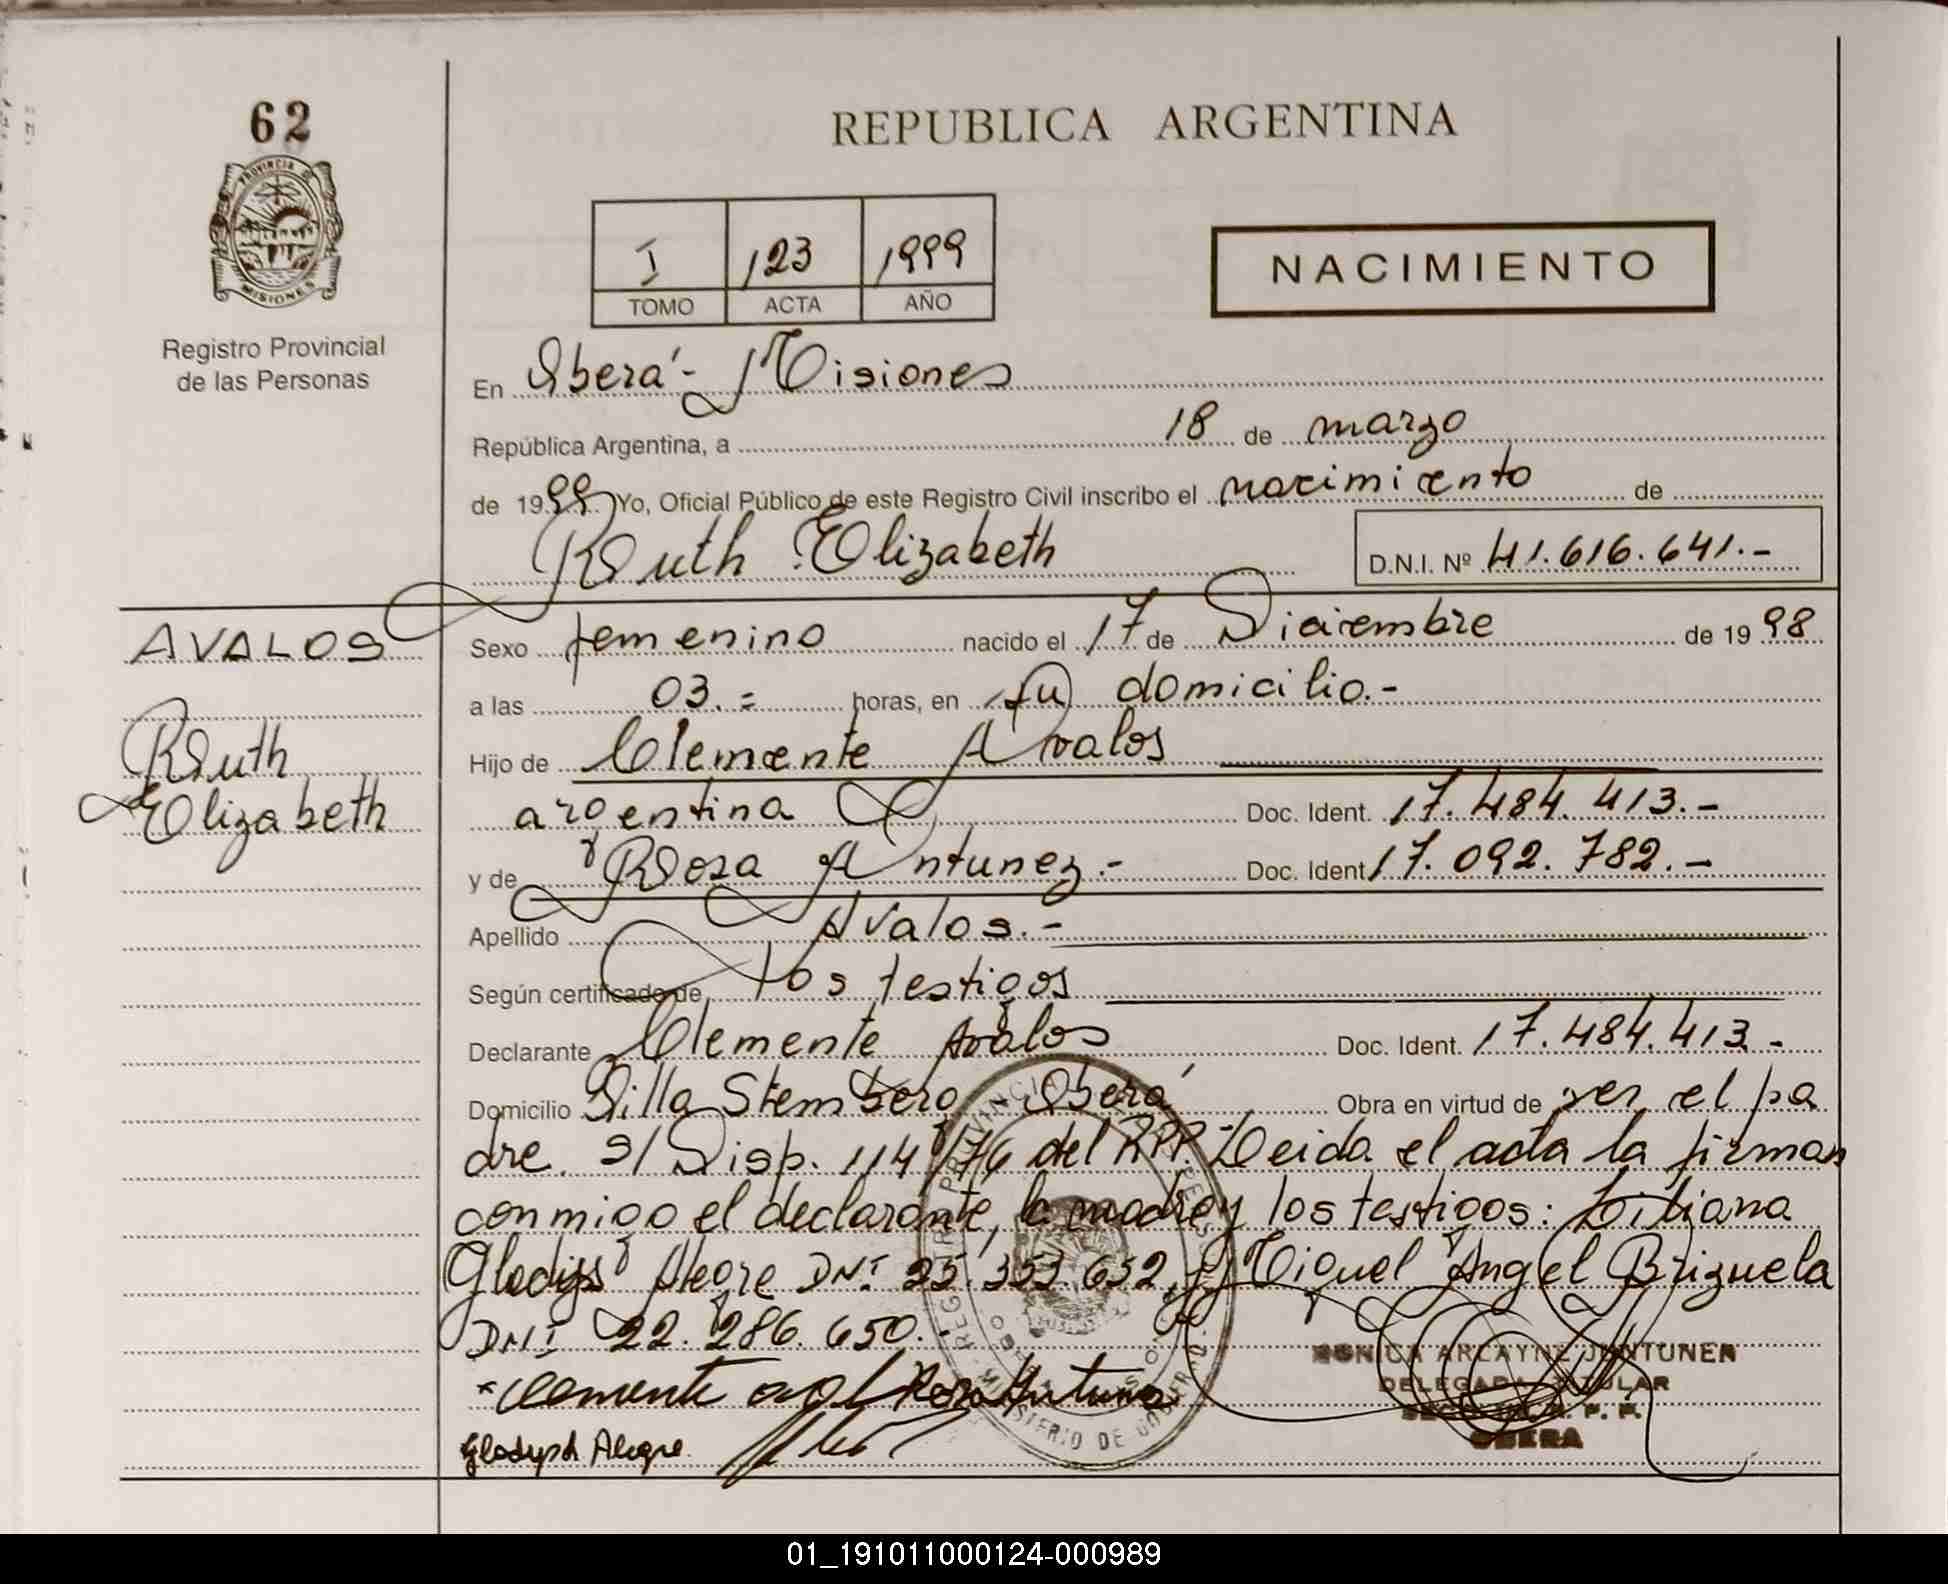 62
PROVINCIA D
MISIONES
Registro Provincial
de las Personas
REPUBLICA ARGENTINA
I 123 1999
TOMO ACTA AÑO
NACIMIENTO
En Oberá - Misiones
República Argentina, a 18 de marzo
de 1999 Yo, Oficial Público de este Registro Civil inscribo el nacimiento de
Ruth Elizabeth
D.N.I. Nº 41.616.641.-
AVALOS
Ruth
Elizabeth
Sexo femenino nacido el 17 de Diciembre de 1998
a las 03.= horas, en su domicilio.-
Hijo de Clemente Avalos
argentina Doc. Ident. 17.484.413.-
y de Rosa Antunez.- Doc. Ident 17.092.782.-
Apellido Avalos.-
Según certificado de los testigos
Declarante Clemente Avalos Doc. Ident. 17.484.413.-
Domicilio Villa Stemberg - Oberá Obra en virtud de ser el pa
dre. s/ Disp. 114/76 del RPP. Leida el acta la firman
conmigo el declarante, la madre y los testigos: Liliana
Gladys Alegre DNI 25.353.652 y Miguel Angel Brizuela
DNI 22.286.650.
Clemente aval Rosa Antunez
Gladys Alegre
ARLAYNE JUNTUNEN
DELEGADA TITULAR
OBERA
MINISTERIO DE GOBIERNO
01_191011000124-000989